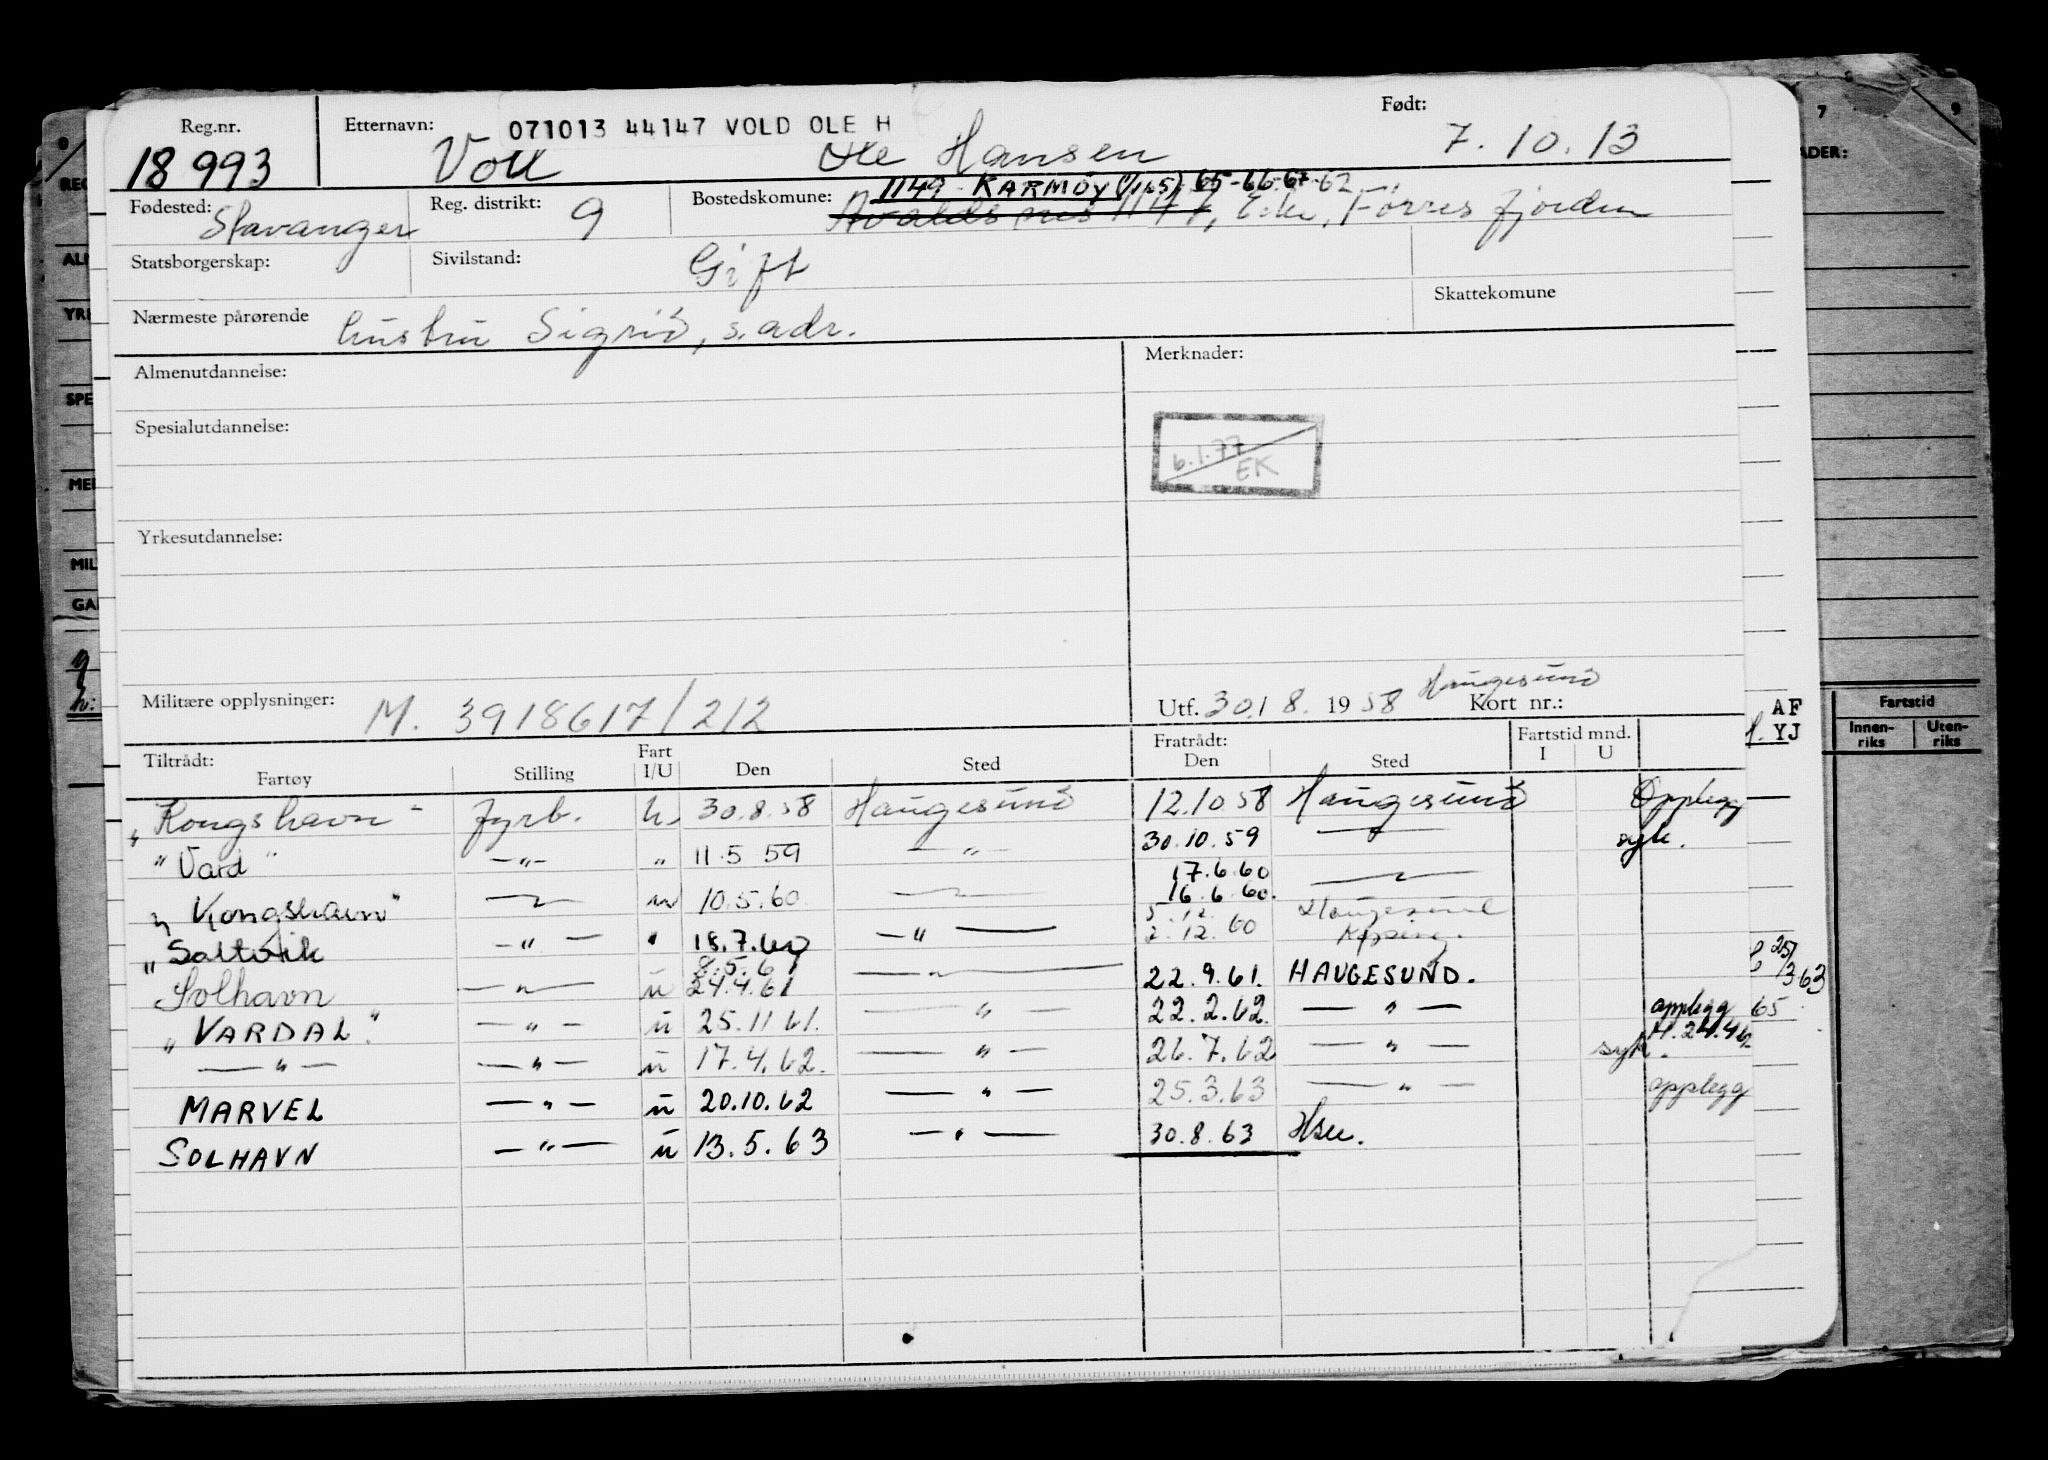 Reg.nr. Etternavn: 071013 44147 VOLD OLE H Født:
18993 Voll Ole Hansen 7.10.13
1149 KARMÖY (1/1.65) 65-66-67-62
Fødested: Stavanger Reg. distrikt: 9 Bostedskomune: Avaldsnes 1147, Eike, Førresfjorden
Statsborgerskap: Sivilstand: Gift
Skattekomune
Nærmeste pårørende hustru Sigrid, s. adr.
Almenutdannelse: Merknader:
Spesialutdannelse:
6.1.77
EK
Yrkesutdannelse:
Militære opplysninger: M. 3918617/212 Utf. 30/8. 1958 Haugesund Kort nr.:
Tiltrådt: Fratrådt: Fartstid mnd.
Fartøy Stilling Fart I/U Den Sted Den Sted I U
"Kongshavn" fyrb. u 30.8.58 Haugesund 12.10 58 Haugesund Opplegg
"Vard" -"- " 11.5 59 -"- 30.10.59 — syk.
17.6.60
"Kongshavn" -"- u 10.5.60 -"- 16.6.60. -"-
5.12. Haugesund
"Saltvik -"- " 18.7.60 -"- 2.12.60
8.5.61
Solhavn -"- u 24.4.61 -"- 22.9.61. HAUGESUND.
"VARDAL". -"- u 25.11.61. -"- 22.2.62. -"- opplegg
-"- -"- u 17.4.62. -"- 26.7.62 -"- syk.
MARVEL -"- u 20.10.62 -"- 25.3.63 -"- opplegg
SOLHAVN -"- u 13.5.63 -"- 30.8.63 Hsu.
7 9
ADER:
REG
ALM
YRK
SPE
MEI
MIL
GA
AF
YJ
Fartstid
Innen-
riks
Uten-
riks
25/
3 63
65